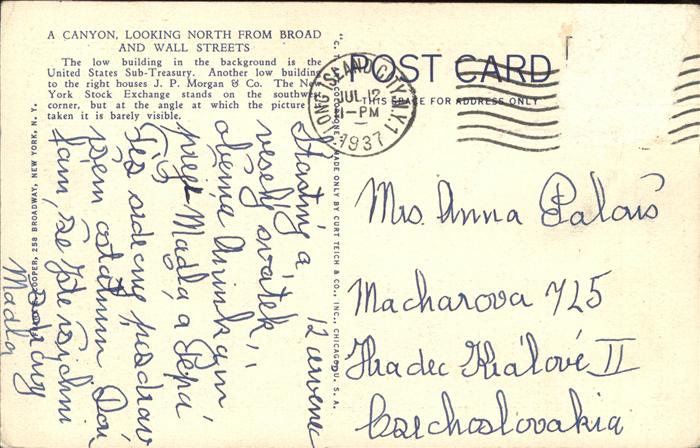 A CANYON, LOOKING NORTH FROM BROAD
AND WALL STREETS
The low building in the background is the
United States Sub-Treasury. Another low building
to the right houses J. P. Morgan & Co. The New
York Stock Exchange stands on the southwest
corner, but at the angle at which the picture
taken it is barely visible.
POST CARD
THIS SPACE FOR ADDRESS ONLY
LONG ISLAND CITY N.Y. 1
JUL 12
-PM
1937
COOPER, 258 BROADWAY, NEW YORK, N. Y.
MADE ONLY BY CURT TEICH & CO., INC., CHICAGO, U. S. A.
12 července
Šťastný a
veselý svátek,
oběma Aninkam
přeje Madla, a Pepa
Též srdečný pozdrav
všem ostatním
že jste všichni
Madla
Mrs. Anna Palous
Macharova 725
Hradec Králové II
Czechoslovakia